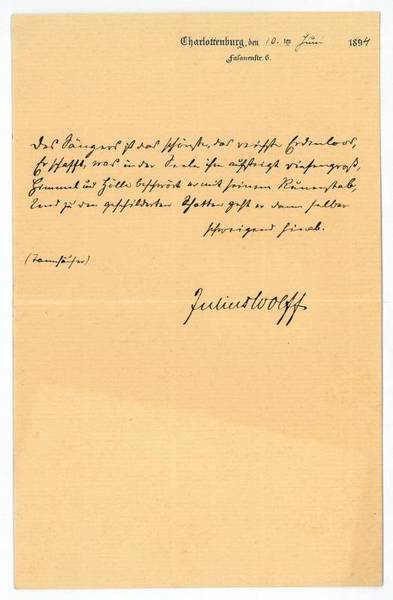 Charlottenburg, den 10. ten Juni 1894
Fasanenstr. 6.
Des Sängers ist das schönste, das reichste Erdenloos,
Er schafft, was in der Seele ihm aufsteigt riesengroß,
Himmel und Hölle beschwört er mit seinem Runenstab,
Und zu den geschilderten Schatten geht er dann selber
schweigend hinab.
(Tannhäuser)
Julius Wolff